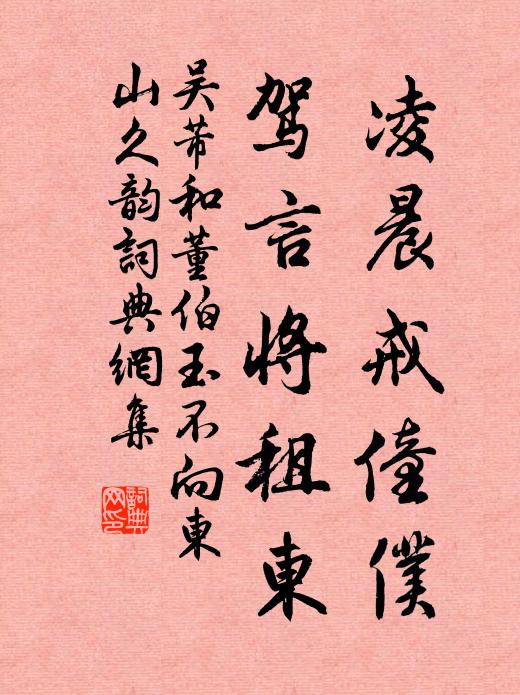 凌晨戒僮僕
驾言将租東
吴芾和董伯玉不向東
山久韵詞典網集
詞典网印